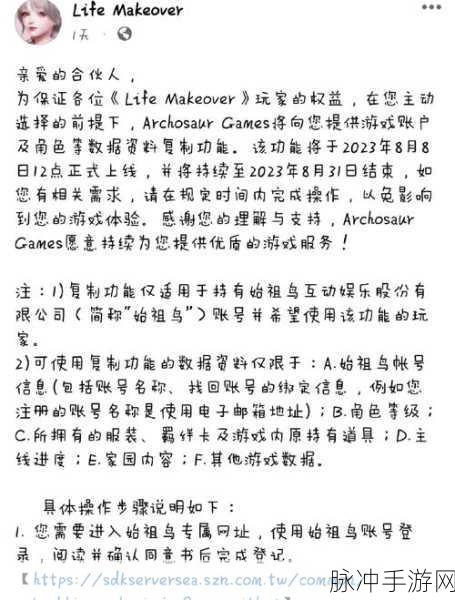 Life Makeover
1天
亲爱的合伙人，
为保证各位《Life Makeover》玩家的权益，在您主动
选择的前提下，Archosaur Games将向您提供游戏账户
及角色等数据资料复制功能。该功能将于2023年8月8
日12点正式上线，并将持续至2023年8月31日结束，如
您有相关需求，请在规定时间内完成操作，以免影响
到您的游戏体验。感谢您的理解与支持，Archosaur
Games愿意持续为您提供优质的游戏服务！
注：1)复制功能仅适用于持有始祖鸟互动娱乐股份有
限公司（简称"始祖鸟"）账号并希望使用该功能的玩
家。
2)可使用复制功能的数据资料仅限于：A.始祖鸟帐号
信息(包括账号名称、找回账号的绑定信息，例如您
注册的账号名称是使用电子邮箱地址)；B.角色等级；
C.所拥有的服装、羁绊卡及游戏内原持有道具；D.主
线进度；E.家园内容；F.其他游戏数据。
具体操作步骤说明如下：
1. 您需要进入始祖鸟专属网址，使用始祖鸟账号登
录，阅读并确认同意书后完成登记。
【https://sdkserversea.szn.com.tw/common/
脉冲手游网